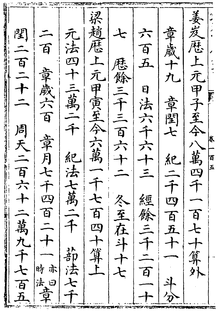 姜岌厯上元甲子至今八萬四千一百七十算外
章歲十九　章閏七　紀二千四百五十一　斗分
六百五　日法六千六十三　經餘三千二百一十
七　厯餘三千三百六十二　冬至在斗十七
梁趙厯上元甲寅至今六萬一千七百四十算上
元法四十三萬二千　紀法七萬二千　蔀法七千
二百　章歲六百　章月七千四百二十一亦曰時法章
閏二百二十二　周天二百六十二萬九千七百五